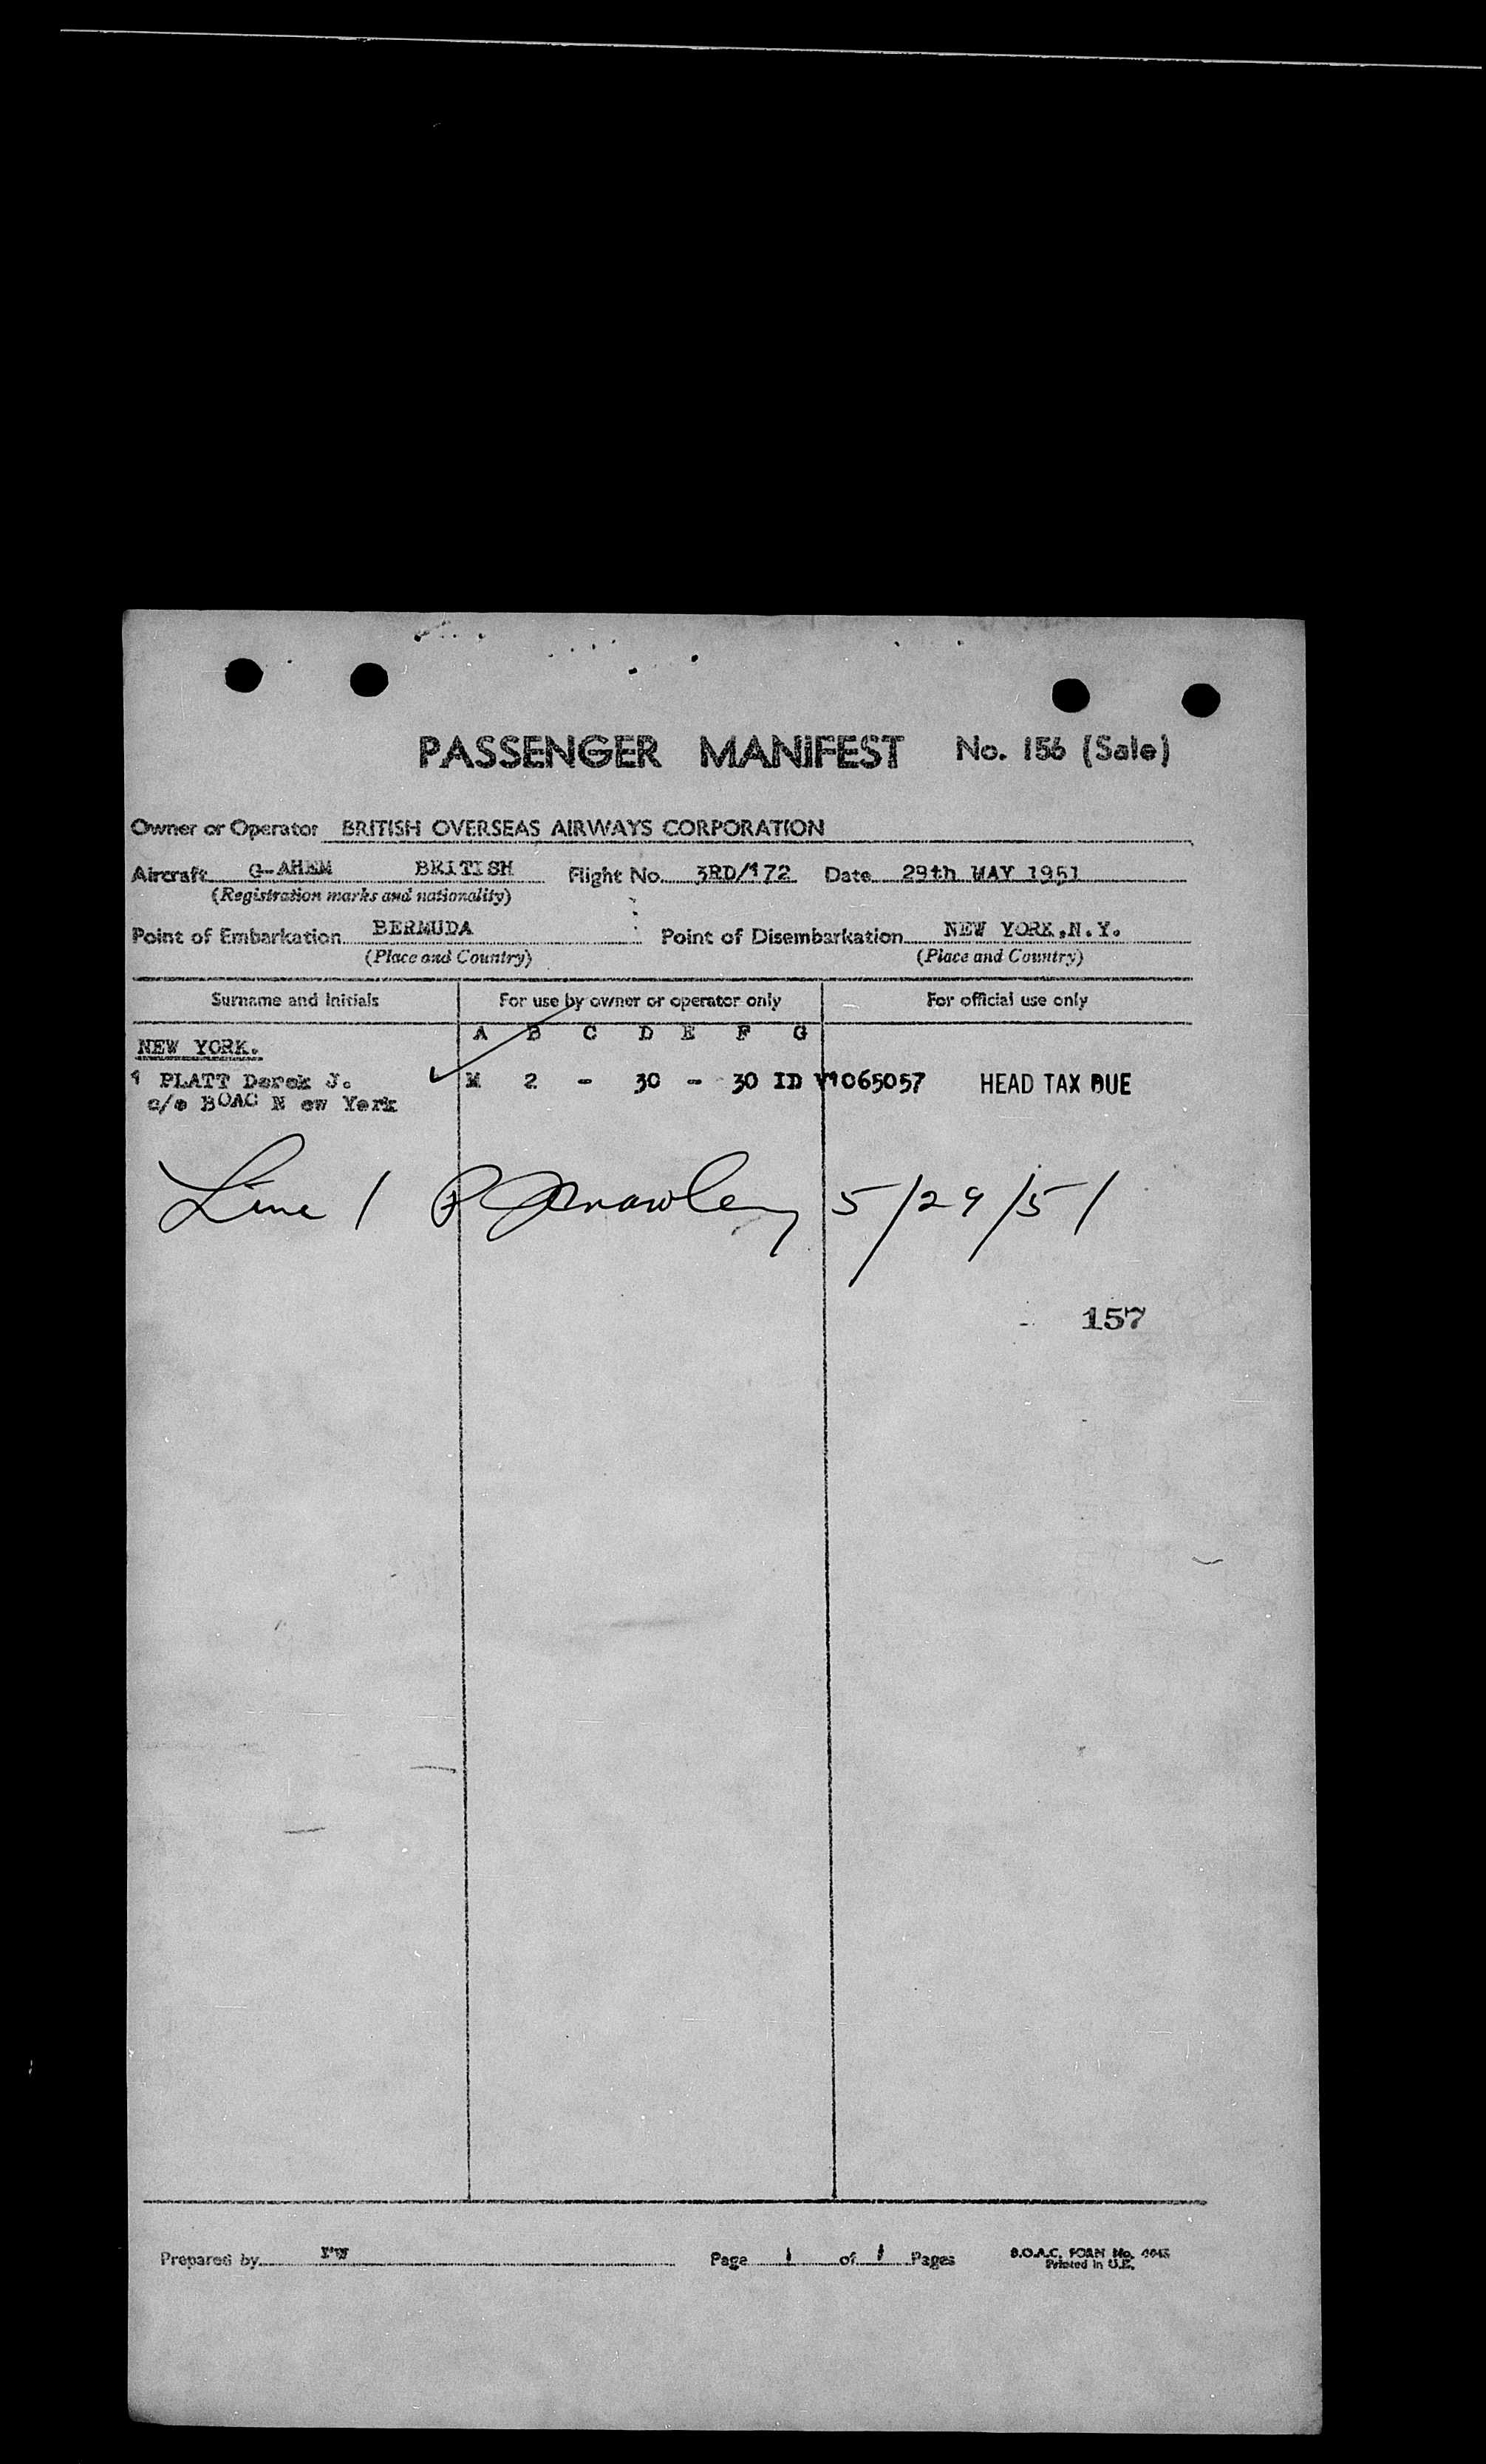 PASSENGER MANIFEST No. 156 (Sale)
Owner or Operator BRITISH OVERSEAS AIRWAYS CORPORATION
Aircraft G-AHEM BRITISH Flight No. 3RD/172 Date 29th MAY 1951
(Registration marks and nationality)
Point of Embarkation BERMUDA Point of Disembarkation NEW YORK,N.Y.
(Place and Country) (Place and Country)
Surname and Initials For use by owner or operator only For official use only
A B C D E F G
NEW YORK.
1 PLATT Derek J. M 2 - 30 - 30 ID 1065057 HEAD TAX DUE
c/o BOAC N ew York
Line 1 5/29/51
157
Prepared by Page 1 of 1 Pages B.O.A.C. FORM No.
Printed in U.K.